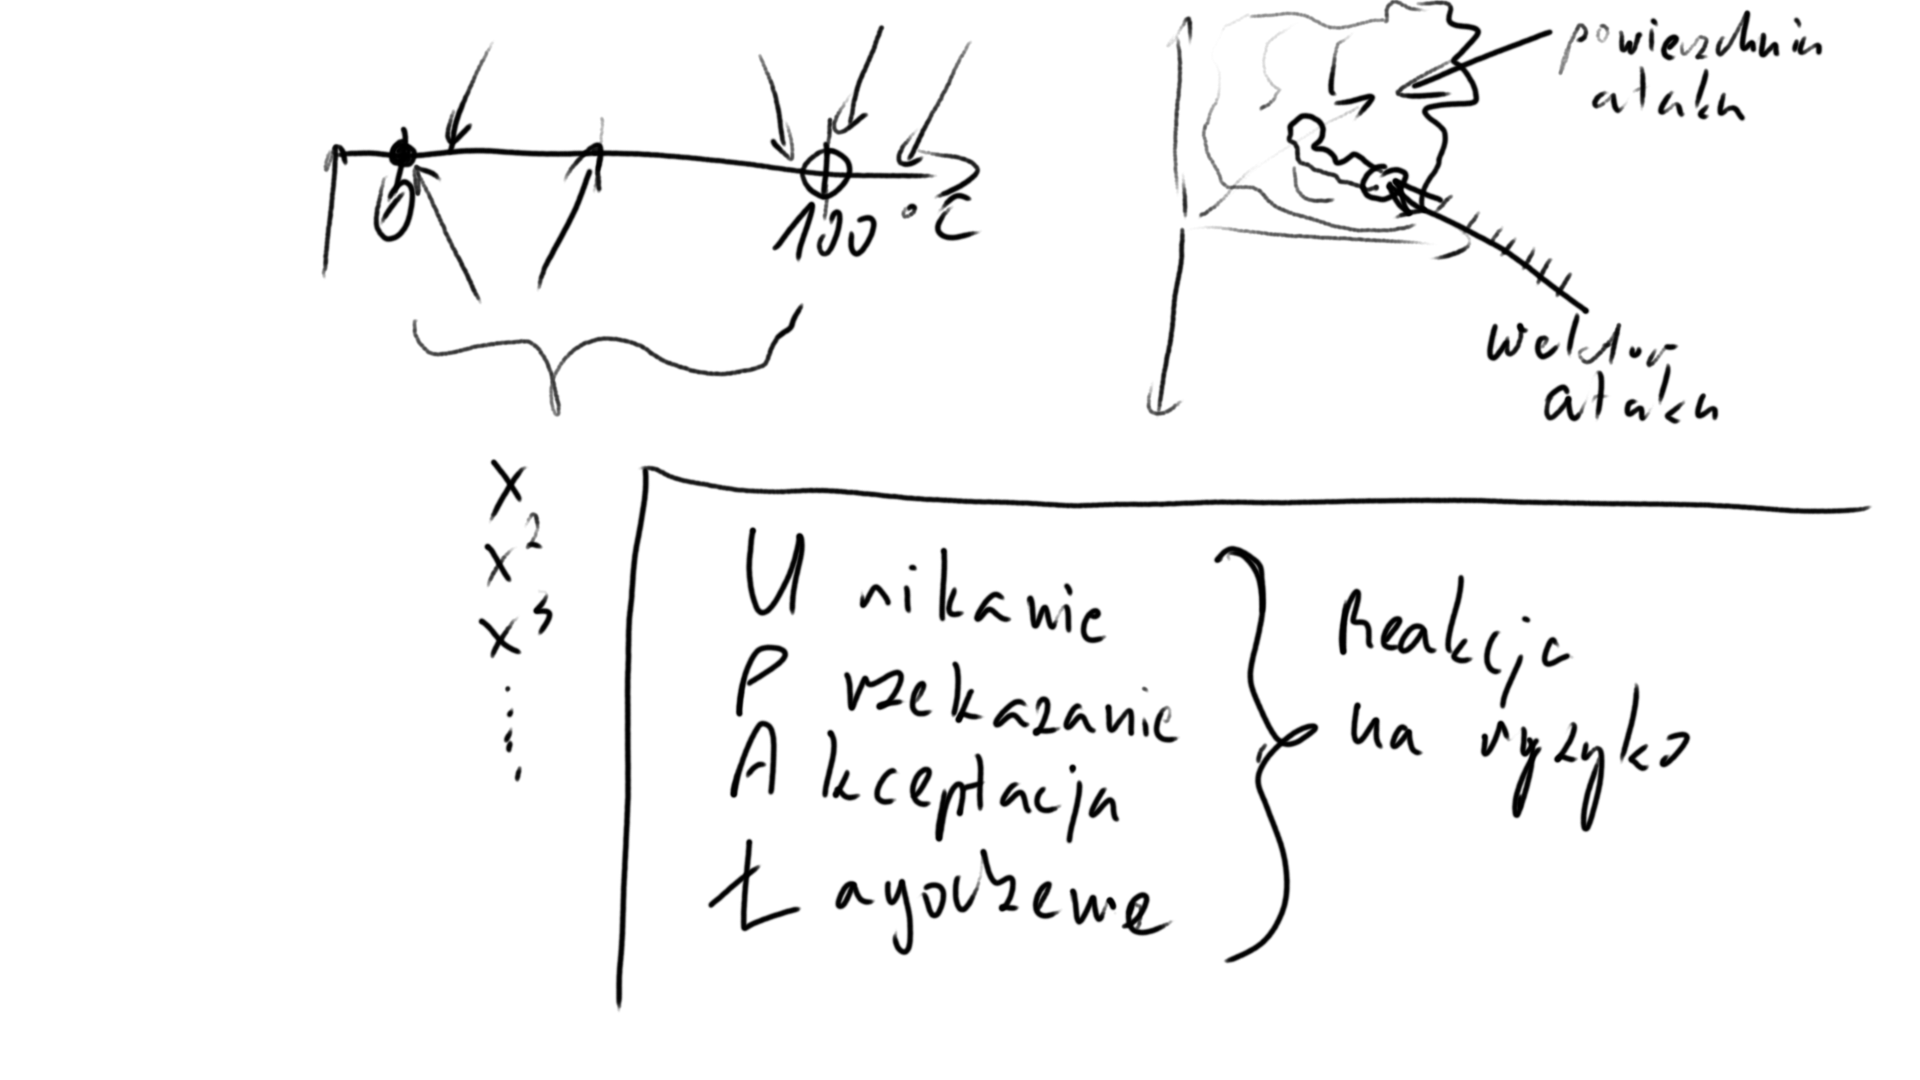 0
100 °C
powierzchnia
ataku
wektor
ataku
x
x²
x³
Unikanie
Przekazanie
Akceptacja
Łagodzenie
Reakcja
na ryzyko